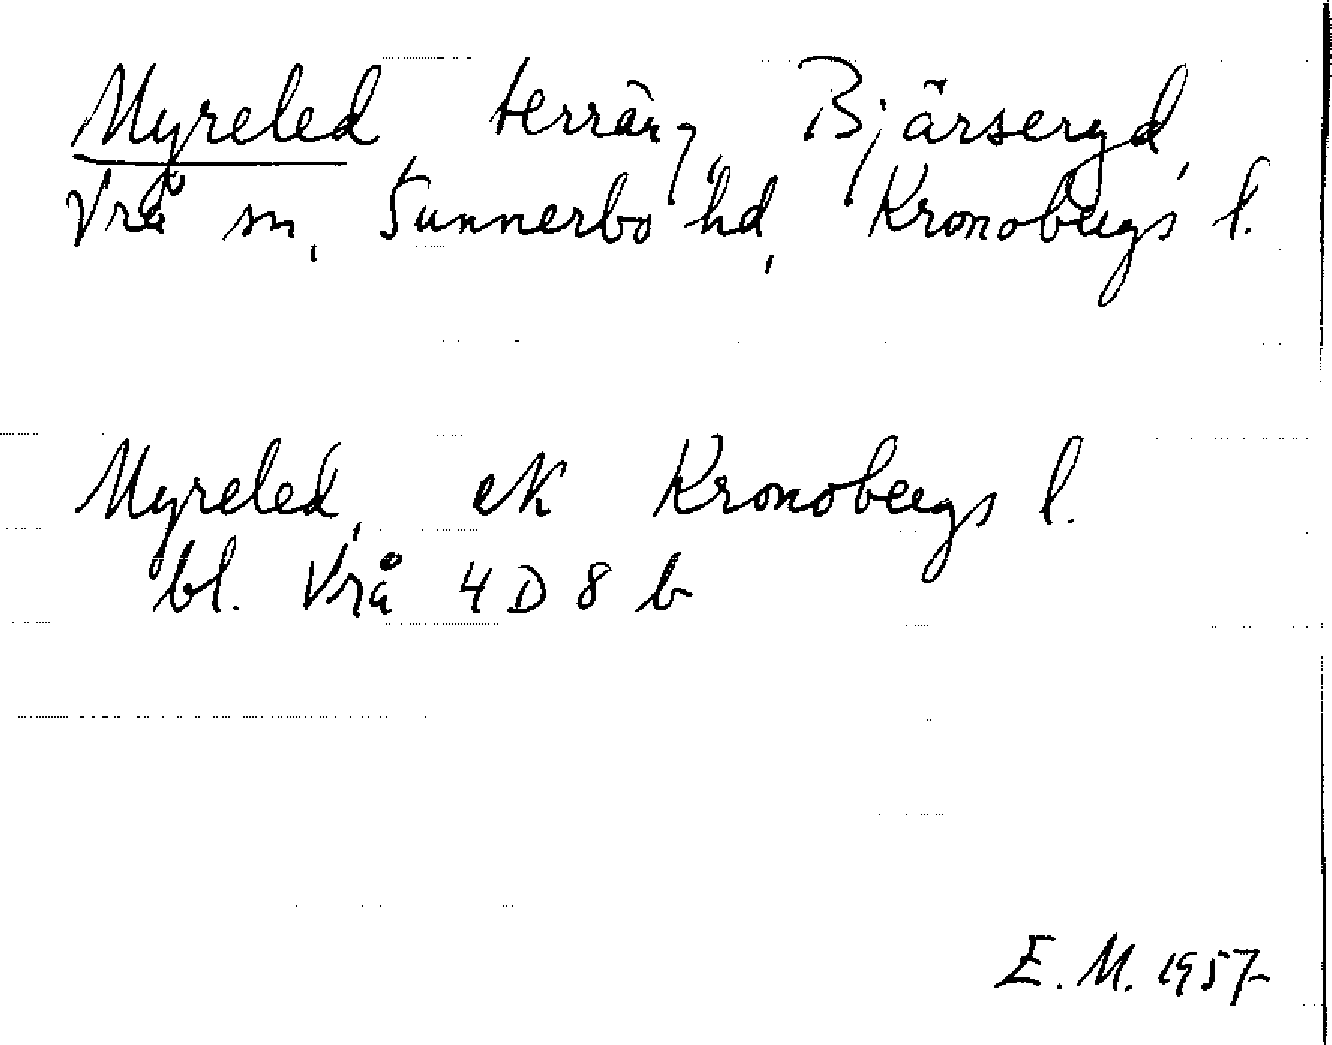 Myreled terräng, Bjärseryd,
Vrå sn, Sunnerbo hd, Kronobergs l.
Myreled, ek Kronobergs l.
bl. Vrå 4 D 8 b
E. M. 1957